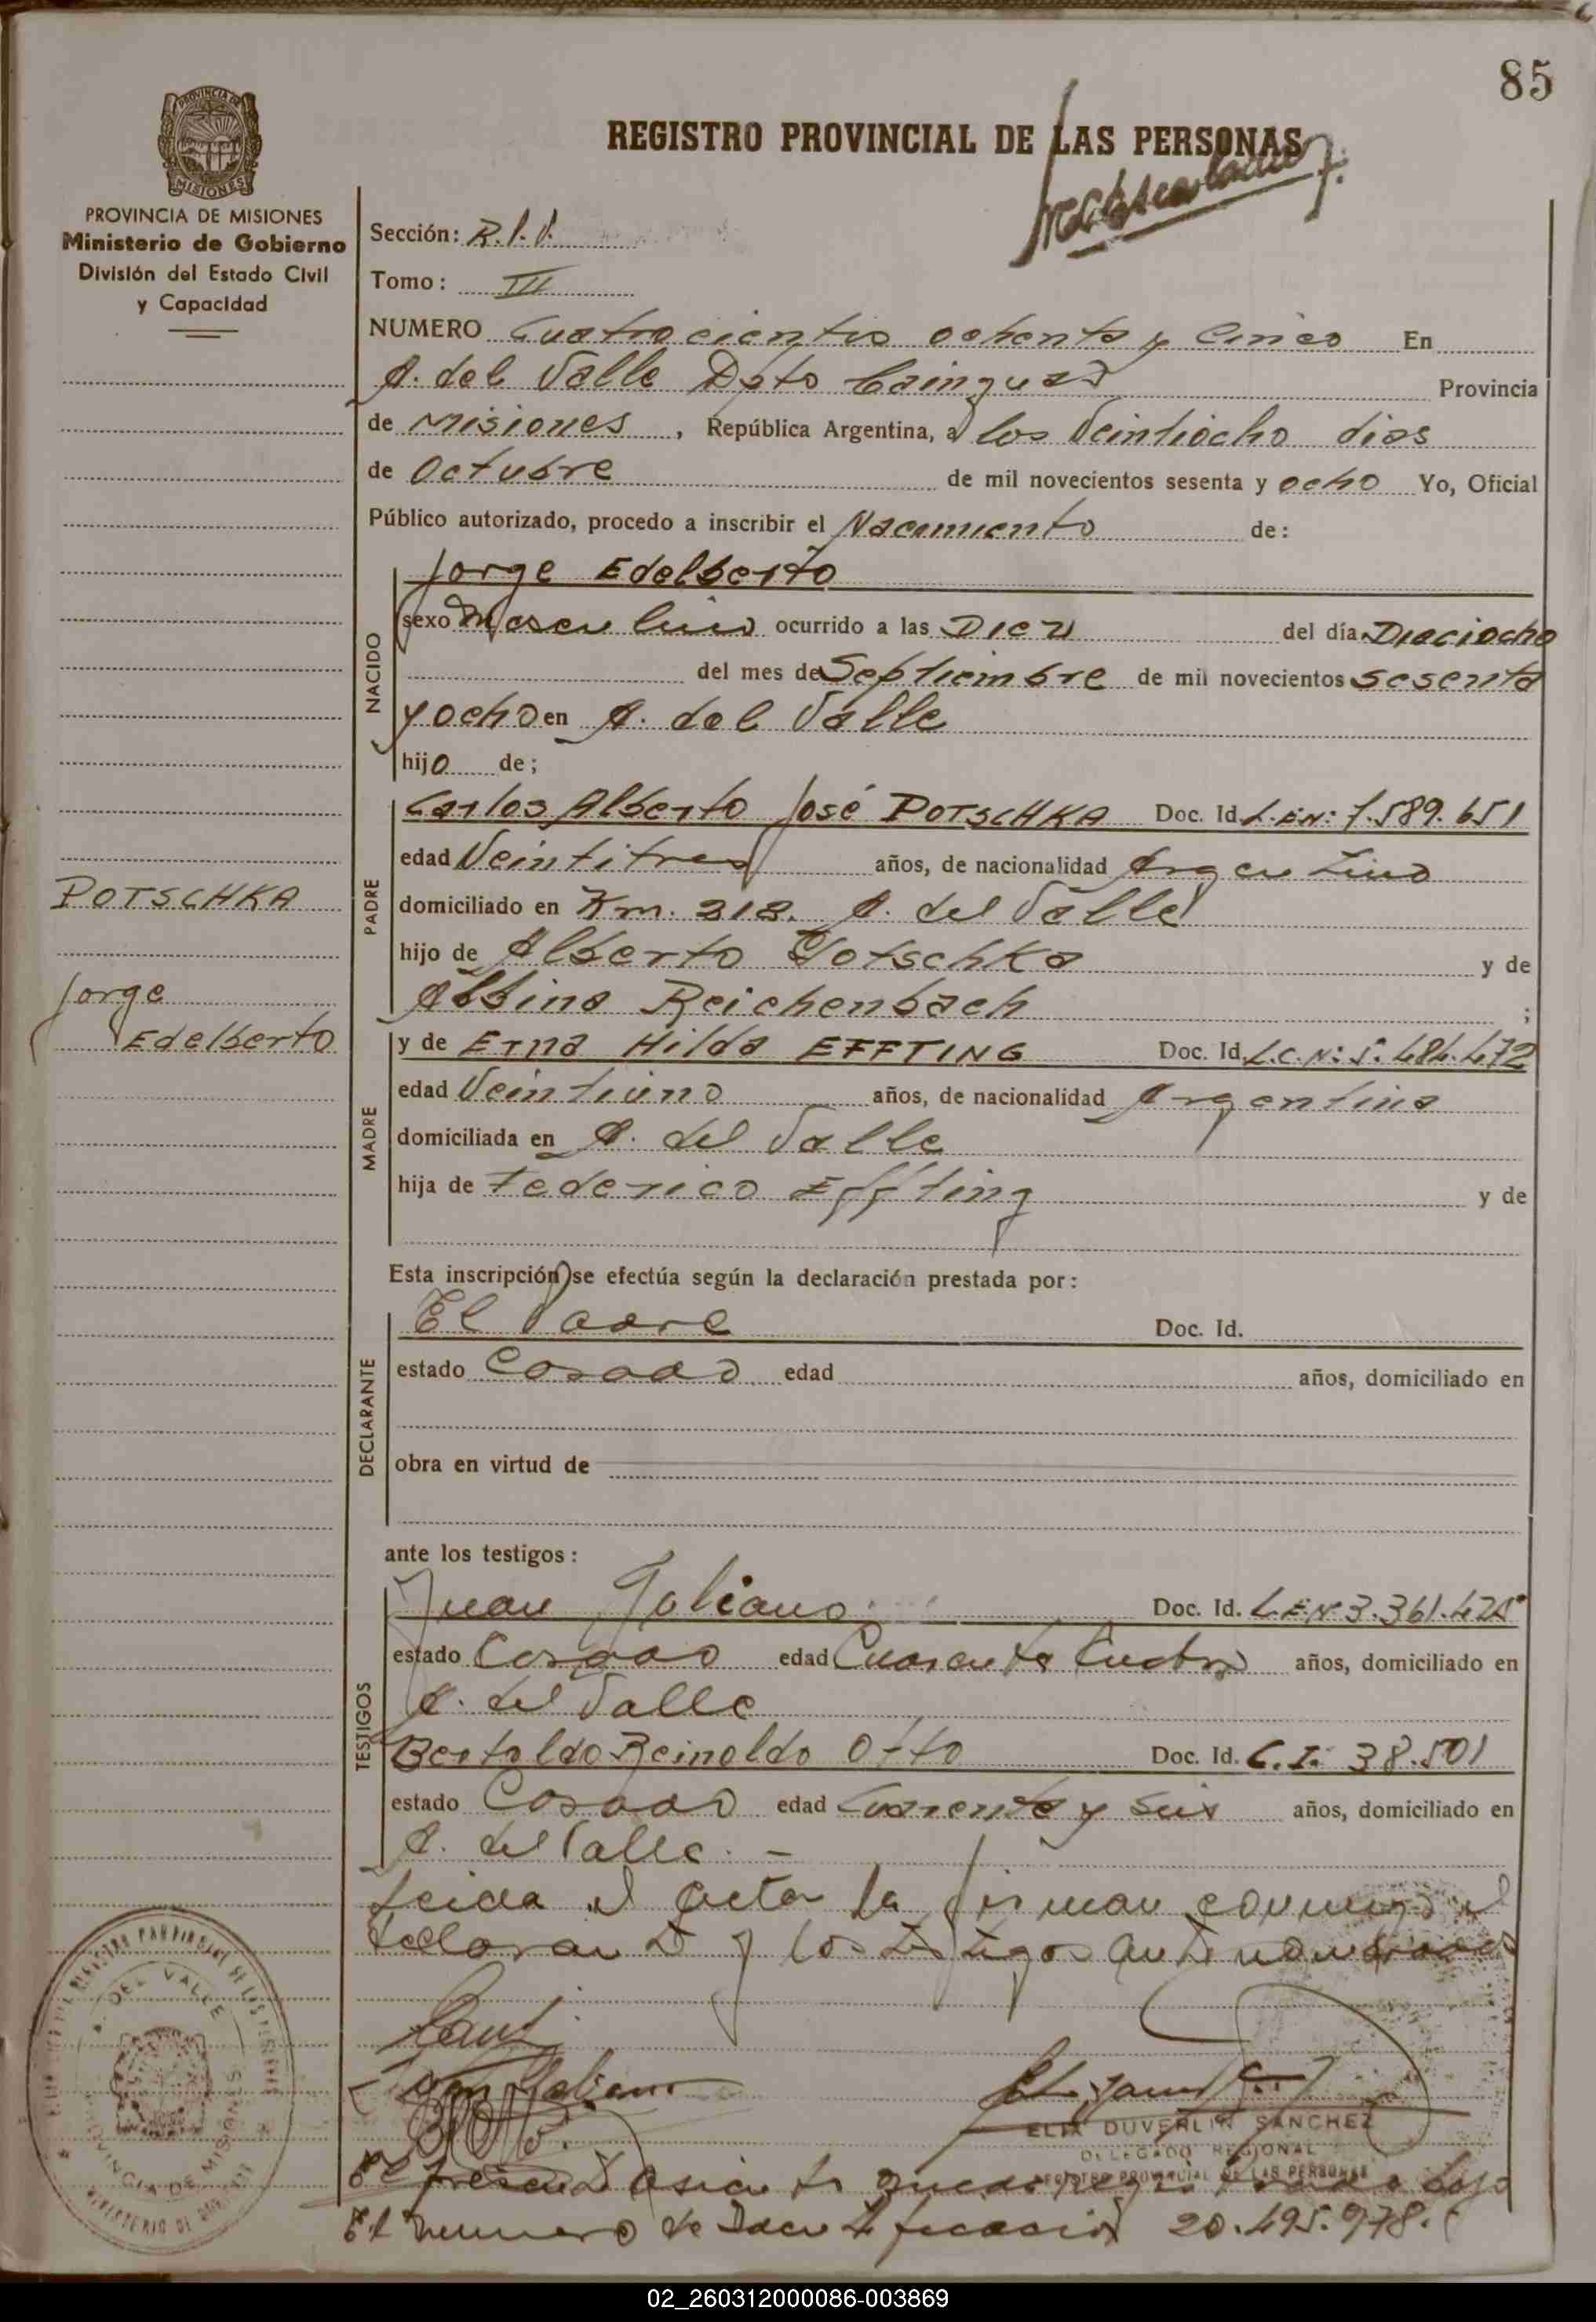 85
REGISTRO PROVINCIAL DE LAS PERSONAS
PROVINCIA DE MISIONES
Ministerio de Gobierno
División del Estado Civil
y Capacidad
Sección: R.P.P.
Tomo: III
NUMERO Cuatrocientos ochenta y Cinco En
A. del Valle Dpto Cainguas Provincia
de Misiones, República Argentina, a los Veintiocho dias
de Octubre de mil novecientos sesenta y ocho Yo, Oficial
Público autorizado, procedo a inscribir el Nacimiento de:
NACIDO
Jorge Edelberto
sexo Masculino ocurrido a las Diez del día Dieciocho
del mes de Septiembre de mil novecientos sesenta
y ocho en A. del Valle
hijo de;
PADRE
Carlos Alberto José POTSCHKA Doc. Id. L.E.N: 7.589.651
edad Veintitres años, de nacionalidad Argentino
domiciliado en Km. 212. A. del Valle
hijo de Alberto Potschka y de
Albina Reichenbach ;
POTSCHKA
Jorge
Edelberto
MADRE
y de Erna Hilda EFFTING Doc. Id. L.C.N: 5.484.472
edad Veintiuno años, de nacionalidad Argentina
domiciliada en A. del Valle
hija de Federico Effting y de
Esta inscripción se efectúa según la declaración prestada por:
DECLARANTE
El Padre Doc. Id.
estado Casado edad años, domiciliado en
obra en virtud de
ante los testigos:
TESTIGOS
Juan Galiano Doc. Id. L.E.N 3.361.425
estado Casado edad Cuarenta Cuatro años, domiciliado en
A. del Valle
Bertoldo Reinoldo Otto Doc. Id. C.I. 38.501
estado Casado edad Cuarenta y Seis años, domiciliado en
A. del Valle. -
Leida el acta la firman conmigo el
declarante y los testigos antenombrados
Juan Galiano
ELIA DUVERLIN SANCHEZ
DELEGADO REGIONAL
REGISTRO PROVINCIAL DE LAS PERSONAS
A. DEL VALLE
PROVINCIA DE MISIONES
El presente asiento queda bajo
El numero de Identificacion 20.495.978.
02_260312000086-003869